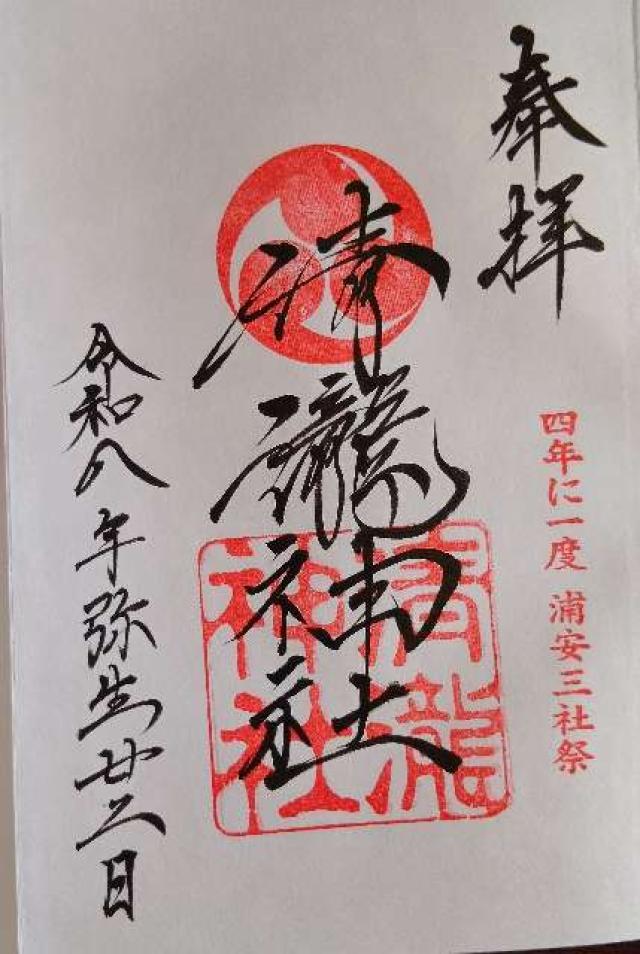 奉拝
四年に一度 浦安三社祭
清瀧神社
清瀧
神社
令和八年弥生廿二日